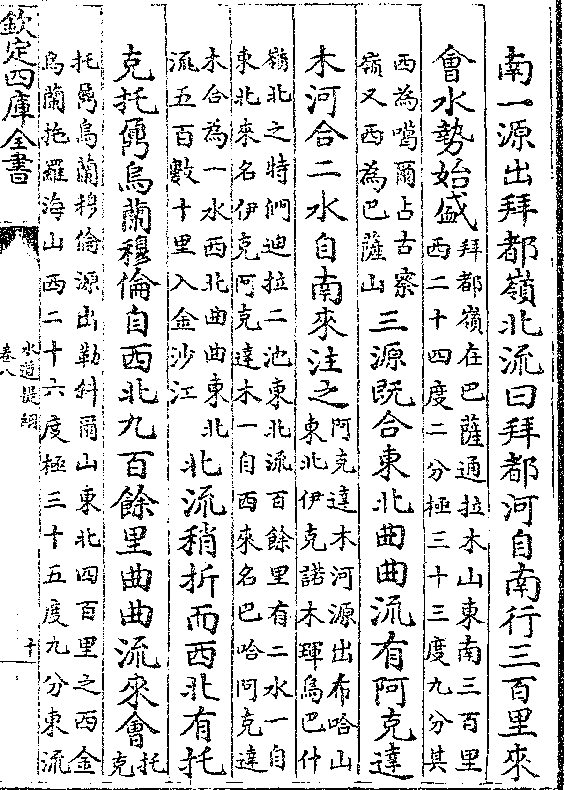 南一源出拜都嶺北流曰拜都河自南行三百里來
會水勢始盛
拜都嶺在巴薩通拉木山東南三百里
西二十四度二分極三十三度九分其
西為噶爾占古察
嶺又西為巴薩山
三源既合東北曲曲流有阿克達
木河合二水自南來注之
阿克達木河源出布哈山
東北伊克諾木琿烏巴什
嶺北之特們迪拉二池東北流百餘里有二水一自
東北來名伊克阿克達木一自西來名巴哈阿克達
木合為一水西北曲曲東北
流五百數十里入金沙江
北流稍折而西北有托
克托鼐烏蘭穆倫自西北九百餘里曲曲流來會
托
克
托鼐烏蘭穆倫源出勒斜爾山東北四百里之西金
烏蘭拖羅海山西二十六度極三十五度九分東流
欽定四庫全書
水道提綱
卷八
十